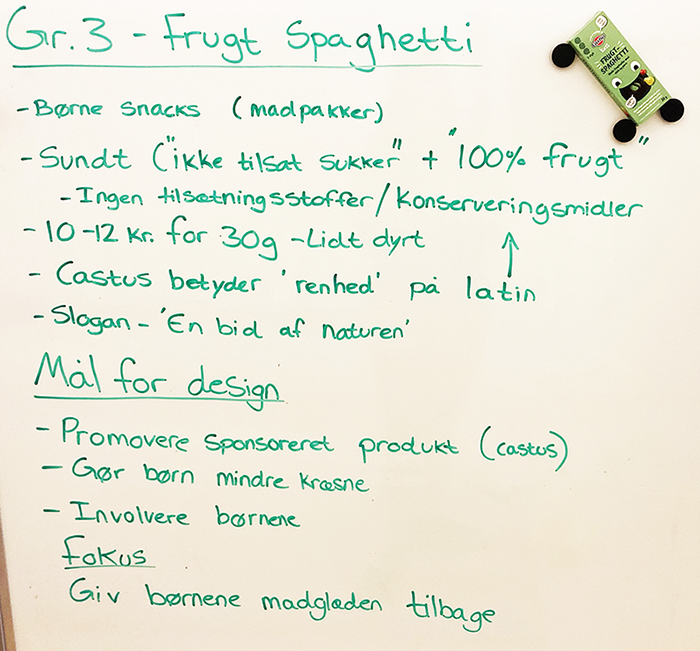 Gr. 3 - Frugt Spaghetti
- Børne snacks (madpakker)
- Sundt ("ikke tilsat sukker" + "100% frugt"
- Ingen tilsætningsstoffer/Konserveringsmidler
- 10-12 kr. for 30g - Lidt dyrt
- Castus betyder 'renhed' på latin
- Slogan - 'En bid af naturen'
Mål for design
- Promovere sponsoreret produkt (castus)
- Gør børn mindre kræsne
- Involvere børnene
Fokus
Giv børnene madglæden tilbage
FRUGT-
SPAGHETTI